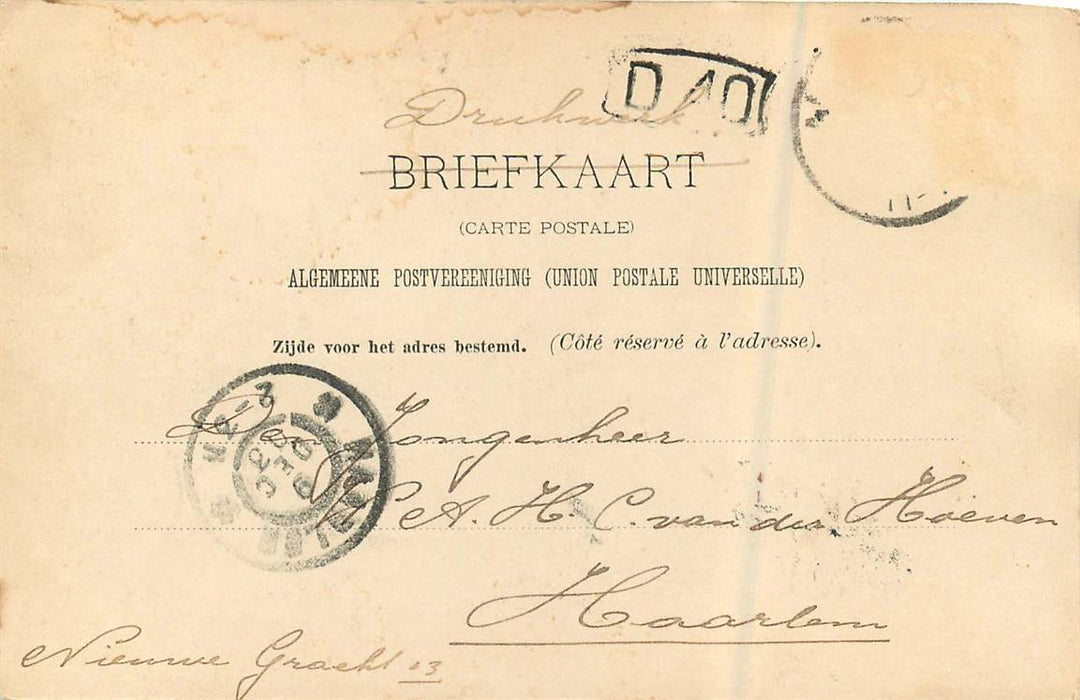 D 40
Drukwerk
BRIEFKAART
(CARTE POSTALE)
ALGEMEENE POSTVEREENIGING (UNION POSTALE UNIVERSELLE)
Zijde voor het adres bestemd. (Côté réservé à l'adresse).
Den Jongenheer
A. H. C. van der Hoeven
Haarlem
Nieuwe Gracht 13